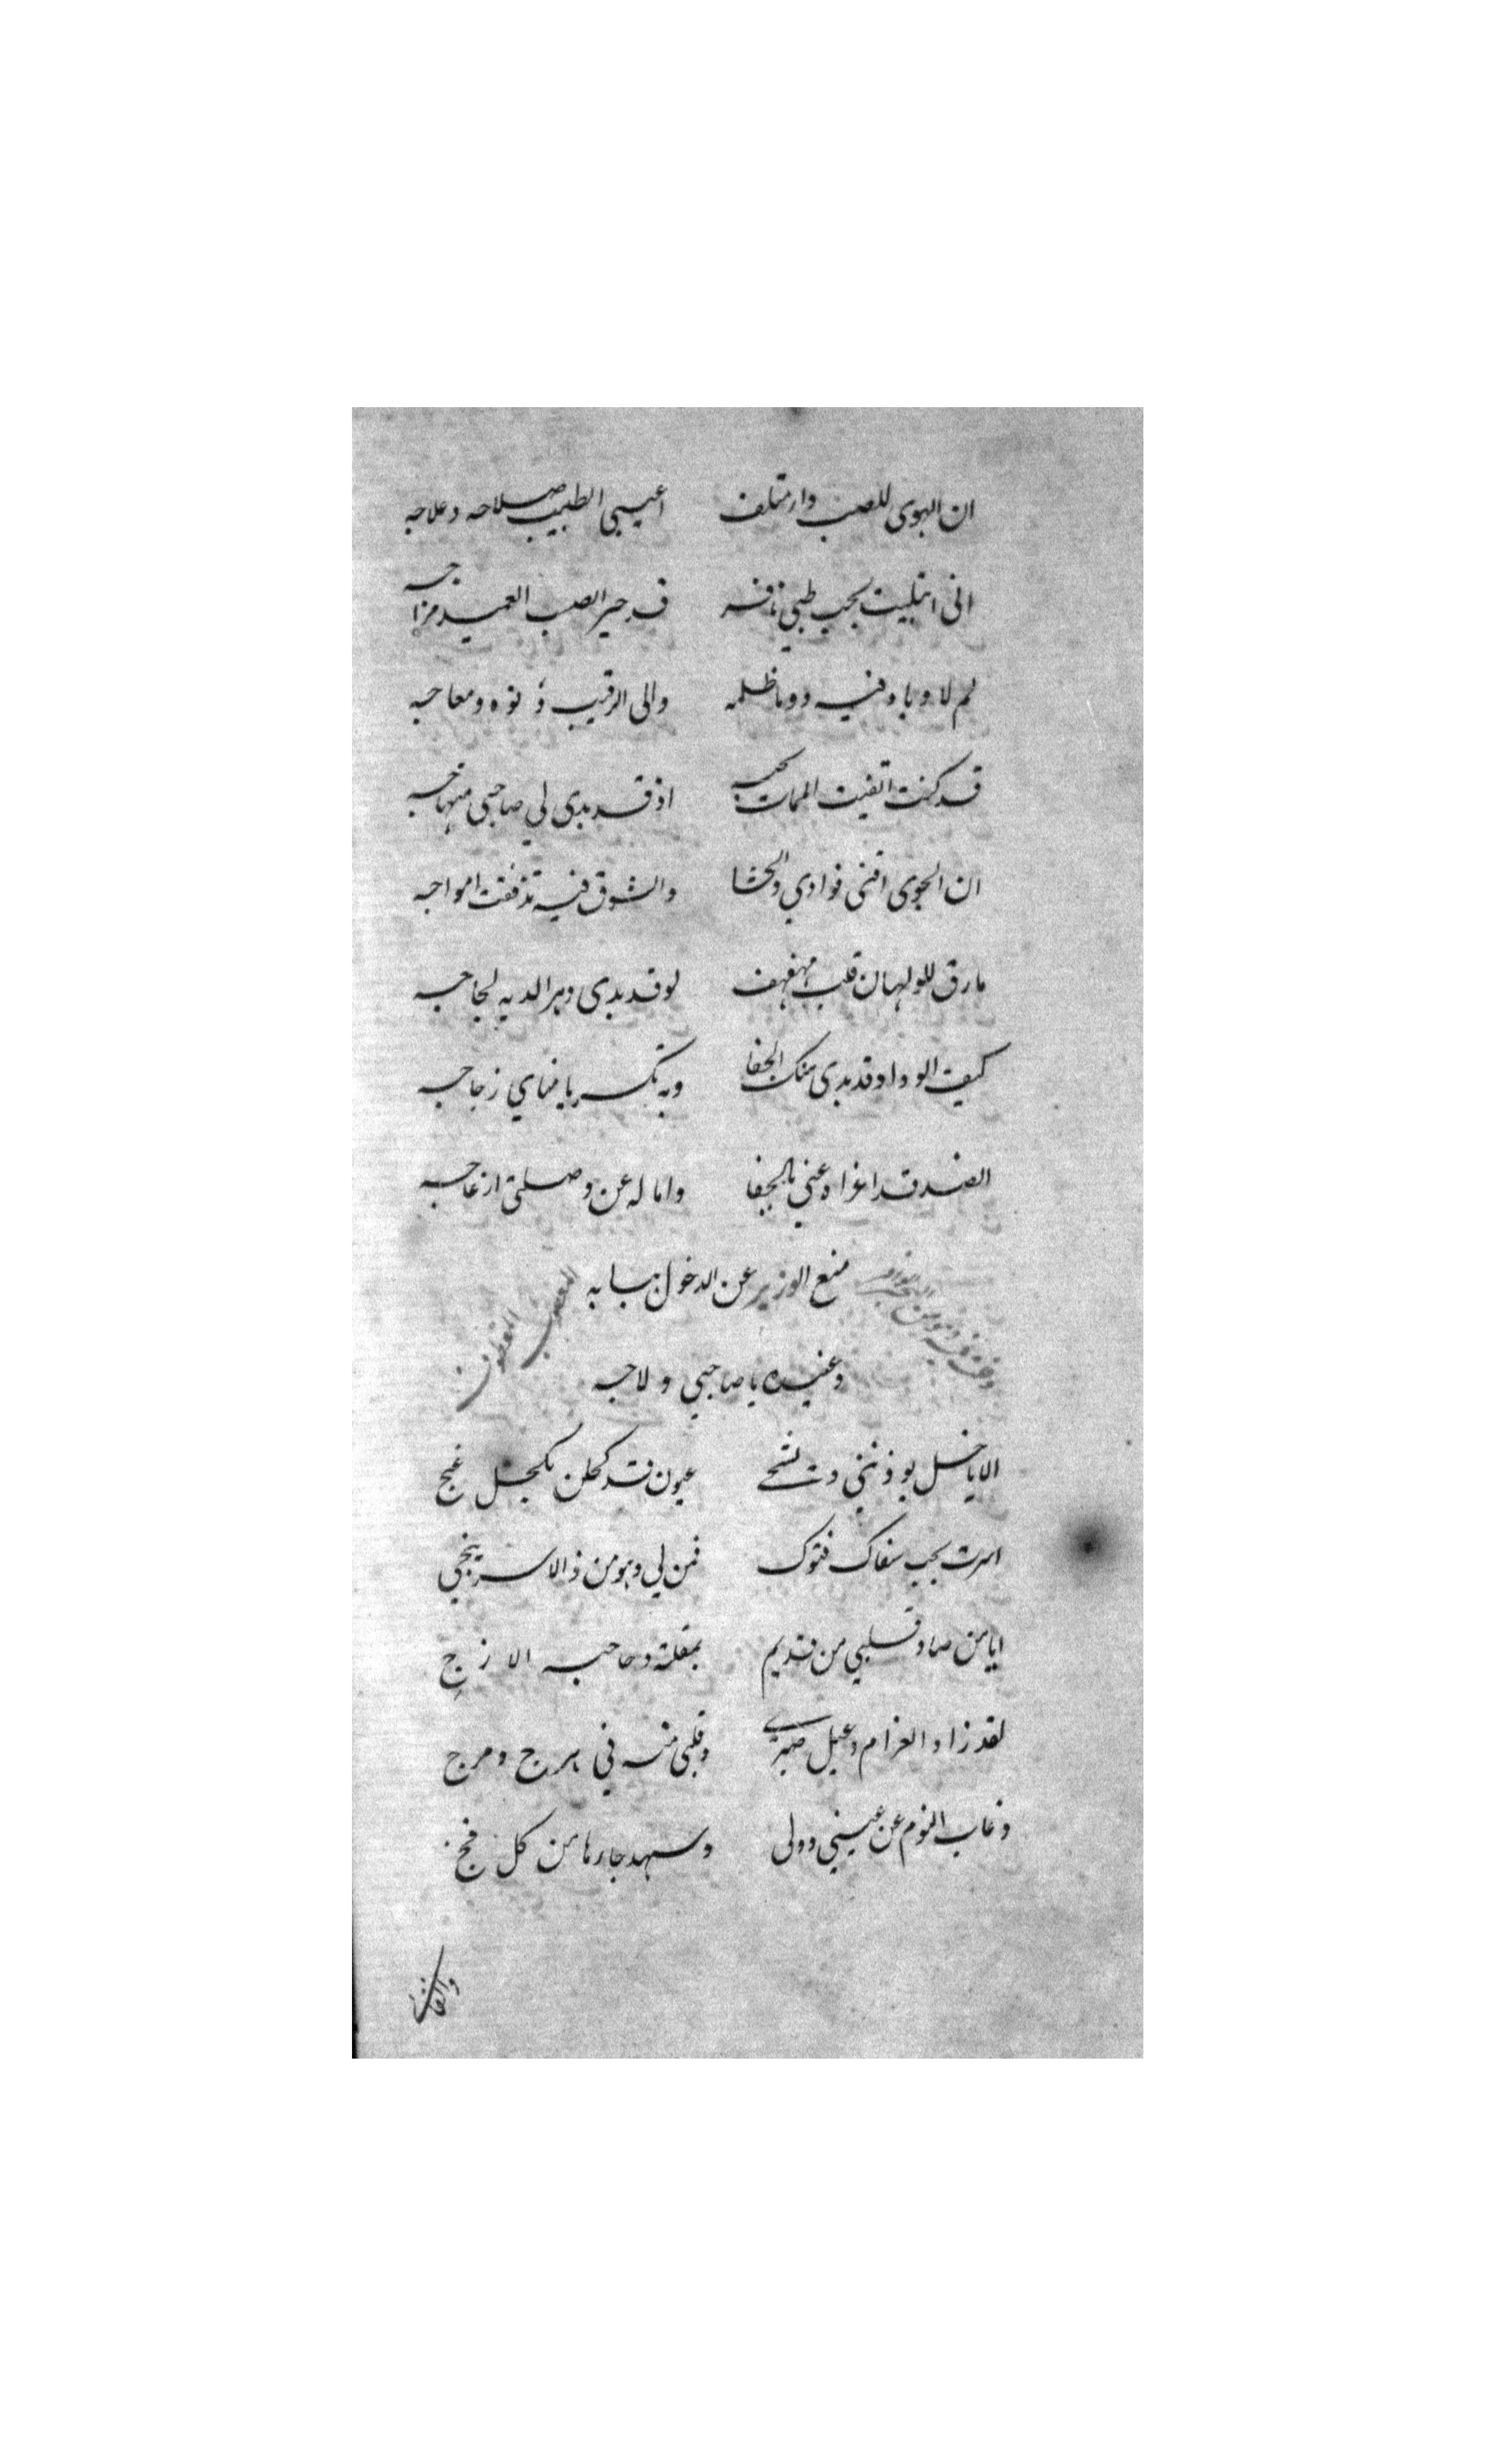 ان الهوى للصب داء متلف اعيى الطبيب صلاحه وعلاجه
انى ابتليت بحب ظبي نافر قد حير الصب العميد مزاجه
لم لا وبا وفيه دوما ظلمه والى الرقيب دنوه ومعاجه
قد كنت القيت الممات بحبه اذ قد بدى لي صاحبي منهاجه
ان الجوى افنى فوادي والحشا والشوق فيه تدفقت امواجه
مارق للولهان قلب مهفهف لو قد بدى وهرا لديه لجاجه
كيف الوداد وقد بدى منك الجفا وبه تكسر يا مناي زجاجه
الضد قد اغراه عني بالجفا واماله عن وصلتي ازعاجه
منع الوزير عن الدخول ببابه
وعبيده يا صاحبي ولاجه
الا يا خل عيون قد كحلن بكحل غنج
اسرت بحب سفاك فتوك فمن لي وهو من ذا الاسر ينجي
ايا من صاد قلبي من قديم بمقلته وحاجبه الازج
لقد زاد الغرام وعيل صبري وقلبي منه في هرج ومرج
وغاب النوم عن عيني وولى وسهد جارها من كل فج